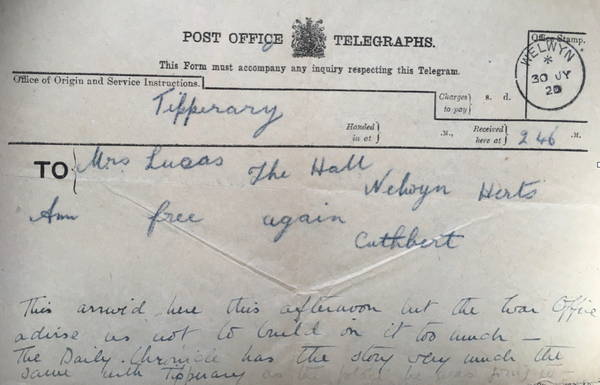 POST OFFICE TELEGRAPHS.
This Form must accompany any inquiry respecting this Telegram.
Office Stamp.
WELWYN
30 JY
20
Office of Origin and Service Instructions.
Tipperary
Charges to pay
s. d.
Handed in at
.M.,
Received here at
2 46
.M.
TO
Mrs Lucas The Hall
Welwyn Herts
Am free again
Cuthbert
This arrived here this afternoon but the War Office
advise us not to build on it too much —
The Daily Chronicle has the story very much the
same with Tipperary as the place he was